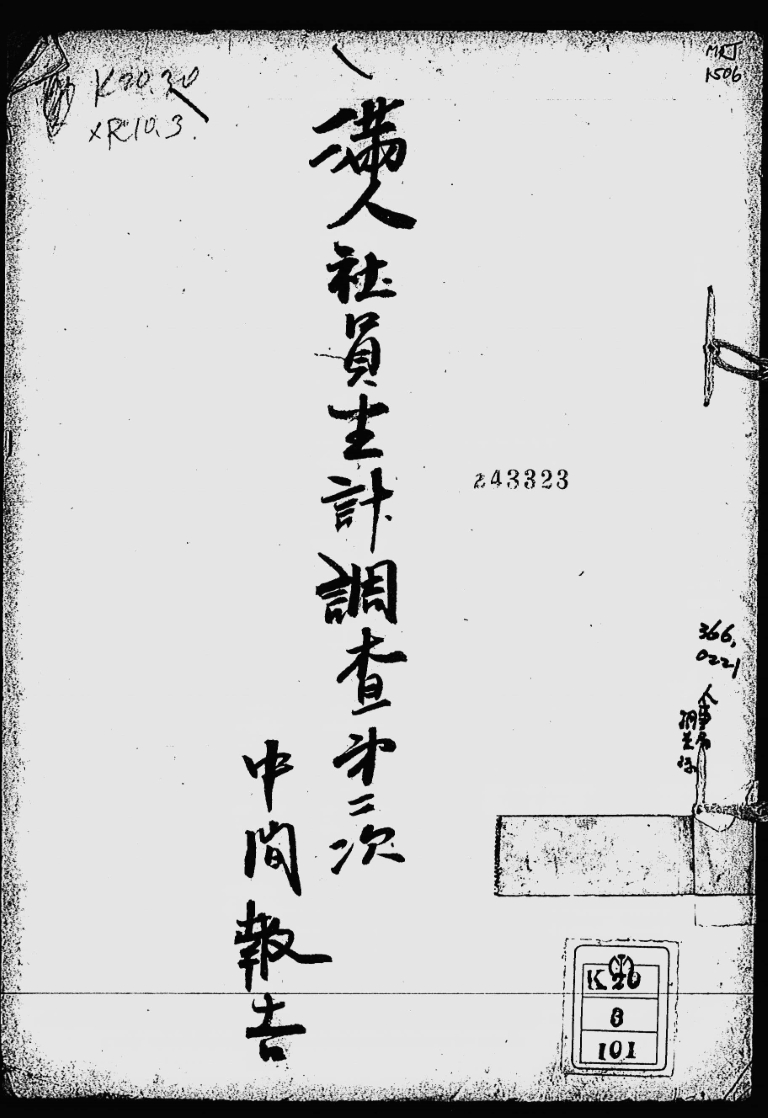 MRJ
1506
K20.20
XR10.3.
満人社員生計調査第二次
中間報告
243323
366.
0221
人事局
K20
8
101